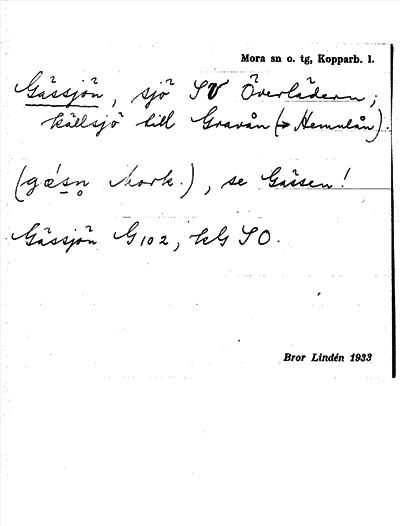 Mora sn o. tg, Kopparb. l.
Gässjön, sjö SV Överlädern;
källsjö till Gravån (→ Hemulån).
(gǽsn̥ Mork.), se Gässen!
Gässjön G102, kG SO.
Bror Lindén 1933